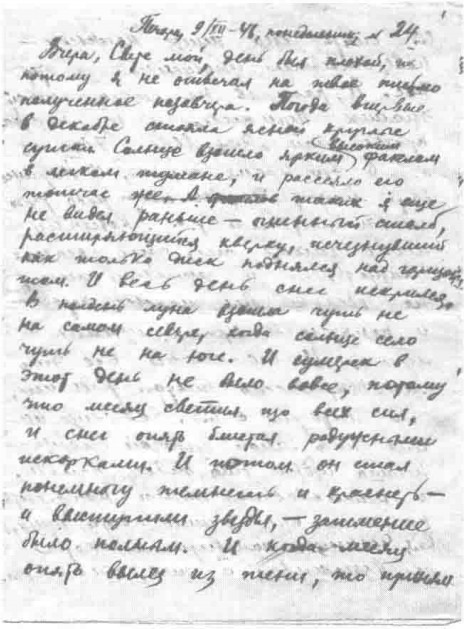 Печора, 9/XII–46, понедельник, № 24.
Вчера, Свет мой, день был плохой, и
потому я не отвечал на твое письмо
полученное позавчера. Погода впервые
в декабре стояла ясной круглые
сутки. Солнце взошло ярким высоким факелом
в легком тумане, и рассеяло его
тотчас же. А таких я еще
не видел раньше – огненный столб,
расширяющийся кверху, исчезнувший
как только диск поднялся над горизон-
том. И весь день снег искрился.
В полдень луна взошла чуть не
на самом севере, когда солнце село
чуть не на юге. И сумерек в
этот день не было вовсе, потому
что месяц светил що всех сил,
и снег опять блистал радужными
искорками. И потом он стал
понемногу темнеть и краснеть –
и выступили звезды, – затмение
было полным. И когда месяц
опять вылез из тени, то принял